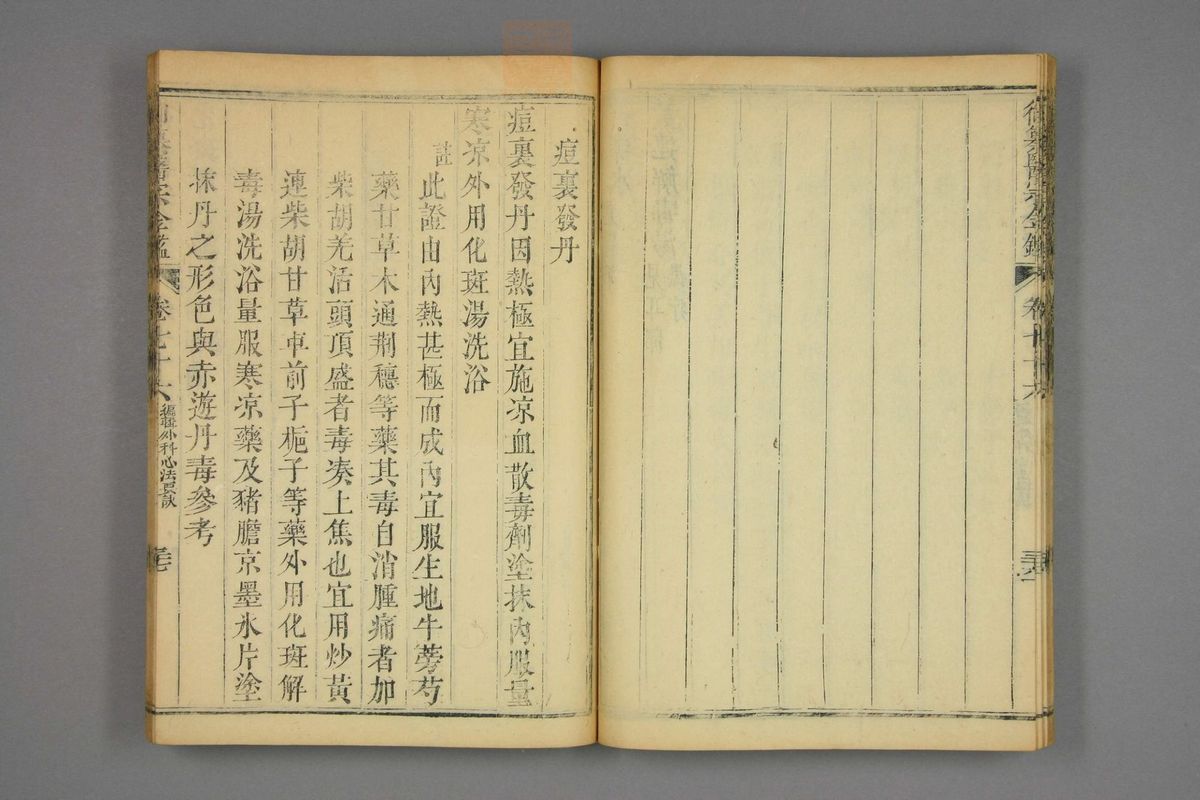 御纂醫宗金鑑
卷七十六
痘裏發丹
痘裏發丹因熱極宜施凉血散毒劑塗抹內服量
寒凉外用化斑湯洗浴
註此證由內熱甚極而成內宜服生地牛蒡芍
藥甘草木通荆穗等藥其毒自消腫痛者加
柴胡羌活頭頂盛者毒凑上焦也宜用炒黃
連柴胡甘草車前子梔子等藥外用化斑解
毒湯洗浴量服寒凉藥及豬膽京墨氷片塗
抹丹之形色與赤遊丹毒參考
御纂醫宗金鑑 卷七十六 編輯外科心法要訣